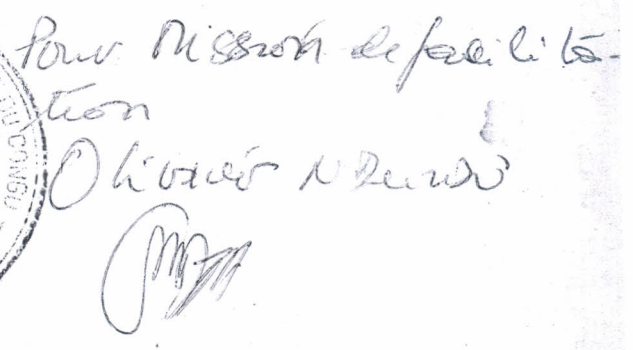 Pour Mission de facilita-
tion
Olivier
DU CONGO